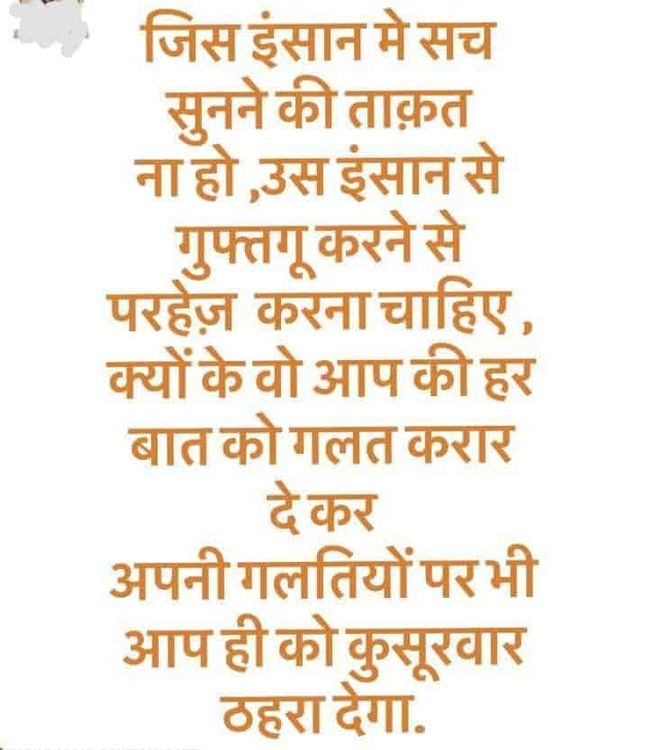 जिस इंसान मे सच
सुनने की ताक़त
ना हो ,उस इंसान से
गुफ्तगू करने से
परहेज़ करना चाहिए ,
क्यों के वो आप की हर
बात को गलत करार
दे कर
अपनी गलतियों पर भी
आप ही को कुसूरवार
ठहरा देगा.